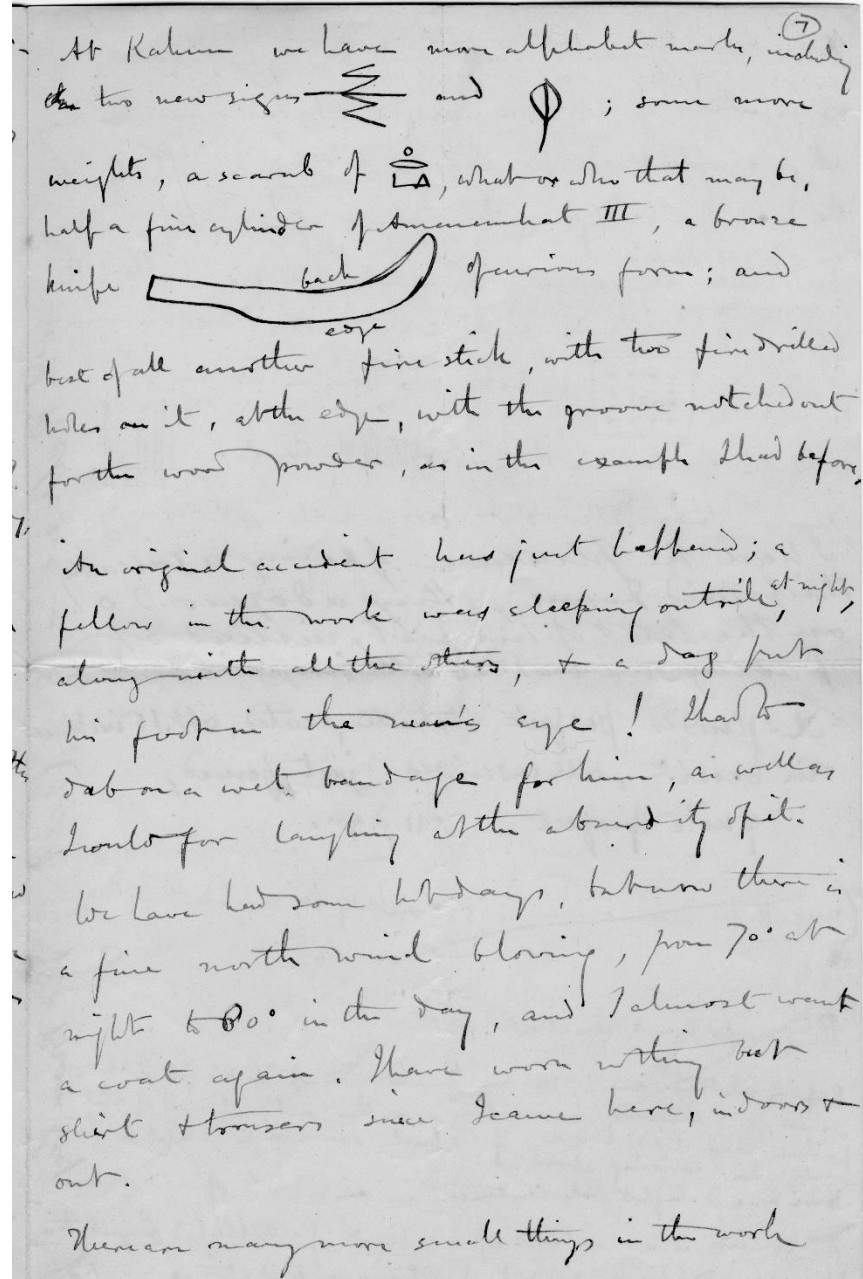 7
At Kahun we have more alphabet marks, including
two new signs and ; some more
weights, a scarab of , what or who that may be,
half a fine cylinder of Amenemhat III, a bronze
knife back of curious form; and
edge
best of all another fire stick, with two fire drilled
holes on it, at the edge, with the groove notched out
for the wood powder, as in the example I had before.
An original accident has just happened; a
fellow in the work was sleeping outside, at night,
along with all the others, & a dog put
his foot in the man's eye! I had to
dab on a wet bandage for him, as well as
I could for laughing at the absurdity of it.
We have had some hot days, but now there is
a fine north wind blowing, from 70° at
night to 80° in the day, and I almost want
a coat again. I have worn nothing but
shirt & trousers since I came here, indoors &
out.
There are many more small things in the work